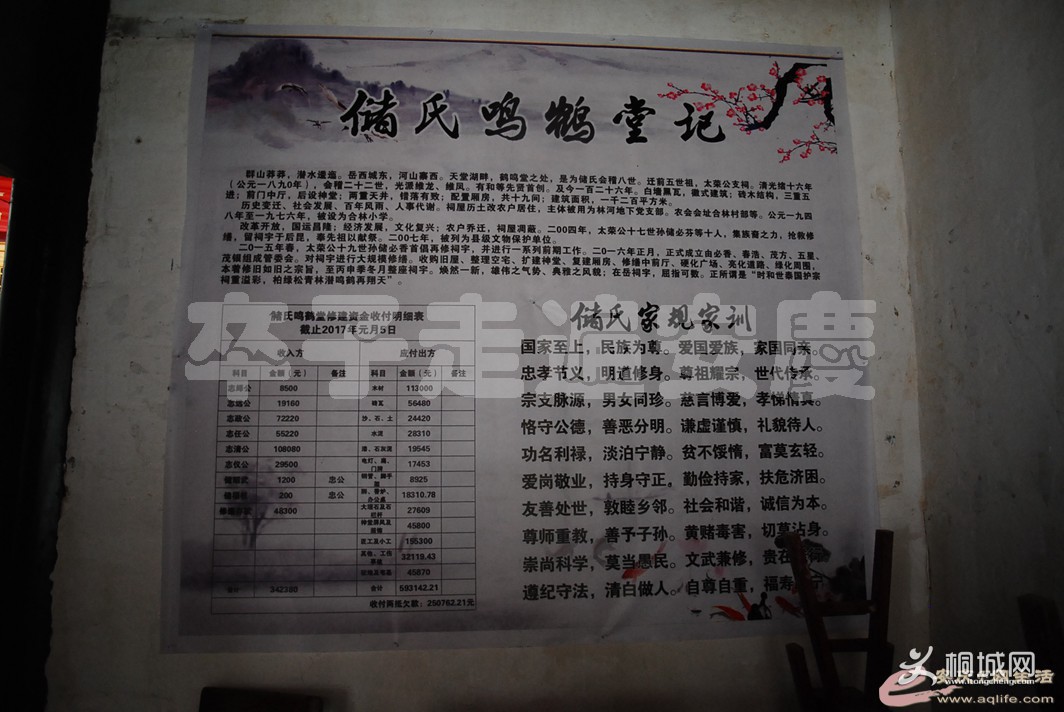 储氏鸣鹤堂记
群山莽莽，潜水逶迤。岳西城东，河山寨西。天堂湖畔，鹤鸣堂之处，是为储氏会稽八世。迁前五世祖，太荣公支祠。清光绪十六年
（公元一八九0年），会稽二十二世，光派维龙、维凤。有和等先贤首创。及今一百二十六年。白墙黑瓦，徽式建筑；砖木结构，三重五
进；前门中厅，后设神堂；两重天井，错落有致；配置厢房，共十九间；建筑面积，一千二百平方米。
历史变迁、社会发展、百年风雨、人事代谢。祠屋历土改农户居住，主体被用为林河地下党支部。农会会址合林村部等。公元一九四
八年至一九七六年，被设为合林小学。
改革开放，国运昌隆；经济发展，文化复兴；农户乔迁，祠屋凋蔽。二00四年，太荣公十七世孙储必芬等十人，集族裔之力，抢救修
缮，留祠宇于后昆，奉先祖以献祭。二00七年，被列为县级文物保护单位。
二0一五年春，太荣公十九世孙储必香首倡再修祠宇，并进行一系列前期工作。二0一六年正月，正式成立由必香、春浩、茂方、五星、
茂镇组成管委会。对祠宇进行大规模修缮。收购旧屋、整理空宅、扩建神堂、复建厢房、修缮中前厅、硬化广场、亮化道路、绿化周围，
本着修旧如旧之宗旨，至丙申季冬月整座祠宇。焕然一新，雄伟之气势、典雅之风貌；在岳祠宇，屈指可数。正所谓是“时和世泰国护高
祠重溢彩，柏绿松青林潜鸣鹤再翔天”。
储氏鸣鹤堂修建资金收付明细表
截止2017年元月5日
收入方 应付出方
科目 金额（元） 备注 科目 金额（元） 备注
8500 木材 113000
志远公 19160 砖瓦 56480
志政公 72220 沙、石、土 24420
志任公 55220 水泥 28310
志清公 108080 漆、石灰泥 19545
志仪公 29500 电灯、南、门牌 17453
1200 忠公 8925
200 忠公 18310.78
48300 大理石及石栏杆 27609
45800
匠工及小工 155300
32119.43
45870
合计 342380 合计 593142.21
收付两抵欠款：250762.21元
储氏家规家训
国家至上，民族为尊。爱国爱族，家国同亲。
忠孝节义，明道修身。尊祖耀宗，世代传承。
宗支脉源，男女同珍。慈言博爱，孝悌情真。
恪守公德，善恶分明。谦虚谨慎，礼貌待人。
功名利禄，淡泊宁静。贫不馁惰，富莫玄轻。
爱岗敬业，持身守正，勤俭持家，扶危济困。
友善处世，敦睦乡邻。社会和谐，诚信为本。
尊师重教，善予子孙。黄赌毒害，切莫沾身。
崇尚科学，莫当愚民。文武兼修，贵在
遵纪守法，清白做人。自尊自重，福寿
桐城网
www.itongcheng.com
生活
www.aqlife.com